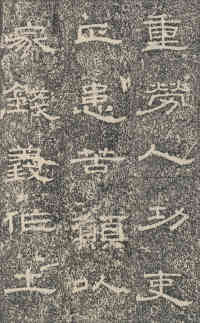 重勞人功吏
正患苦願以
家錢義作土